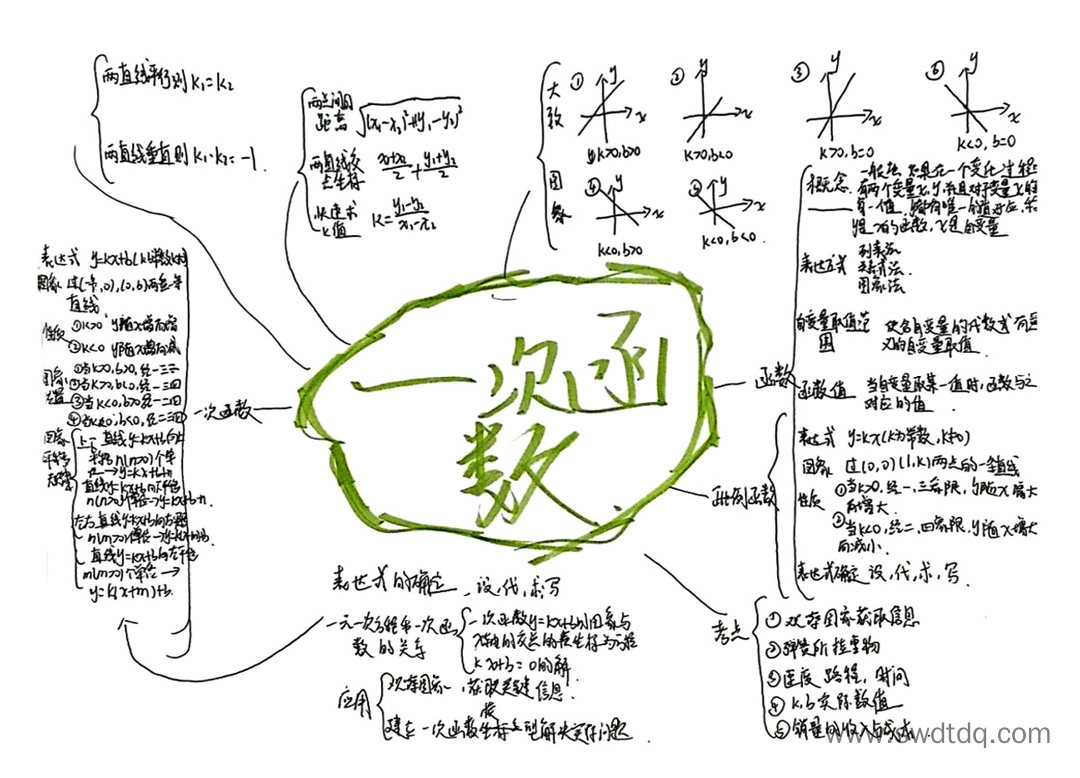 一次函
数
两直线平行则 k₁=k₂
两直线垂直则 k₁·k₂=-1
两点间的
距离 √(x₁-x₂)²+(y₁-y₂)²
x₁+x₂/2 + y₁+y₂/2
k值 k=y₁-y₂/x₁-x₂
大
致
图
象
① y x
k>0,b>0
② y x
k>0,b<0
③ y x
k>0,b=0
⑥ y x
k<0,b=0
y x
k<0,b>0
y x
k<0,b<0
函数
概念 一般地,如果在一个变化过程
有两个变量x,y,并且对于变量x的
每一值,
是x的函数,x是自变量
表达方式
列表法
关系式法
图象法
自变量取值范
围
使含自变量的代数式有意
义的自变量取值.
函数值 当自变量取某一值时,函数与之
对应的值
正比例函数
表达式 y=kx(k为常数,k≠0)
图象 过(0,0)(1,k)两点的一条直线
性质
①当k>0,经一、三象限,y随x增大
而增大.
②当k<0,经二、四象限,y随x增大
而减小.
表达式确定 设,代,求,写.
考点
① 从图象获取信息
②弹簧所挂重物
③速度 路程,时间
④k,b实际数值
⑤销量的收入与成本
一次函数
表达式 y=kx+b
直线
性质 ①k>0 y随x增而增
②k<0 y随x增而减
图象
位置
①当k>0,b>0,经一二三
②当k>0,b<0,经一三四
③当k<0,b>0经一二四
④当k<0,b<0,经二三四
图象
平移
上下 直线y=kx+b向上
平移n(n>0)个单
直线y=kx+b向下平移
n(n>0)个单位
左右
直线y=kx+b向左平移
m(m>0)个单位→
y=k(x+m)+b.
表达式的确定,设,代,求,写
一元一次方程和一次函
数的关系
一次函数y=kx+b的图象与
x轴的交点的横坐标为方程
kx+b=0的解
应用
从图象,获取关键信息.
建立一次函数模型解决实际问题
www.swdtdq.com